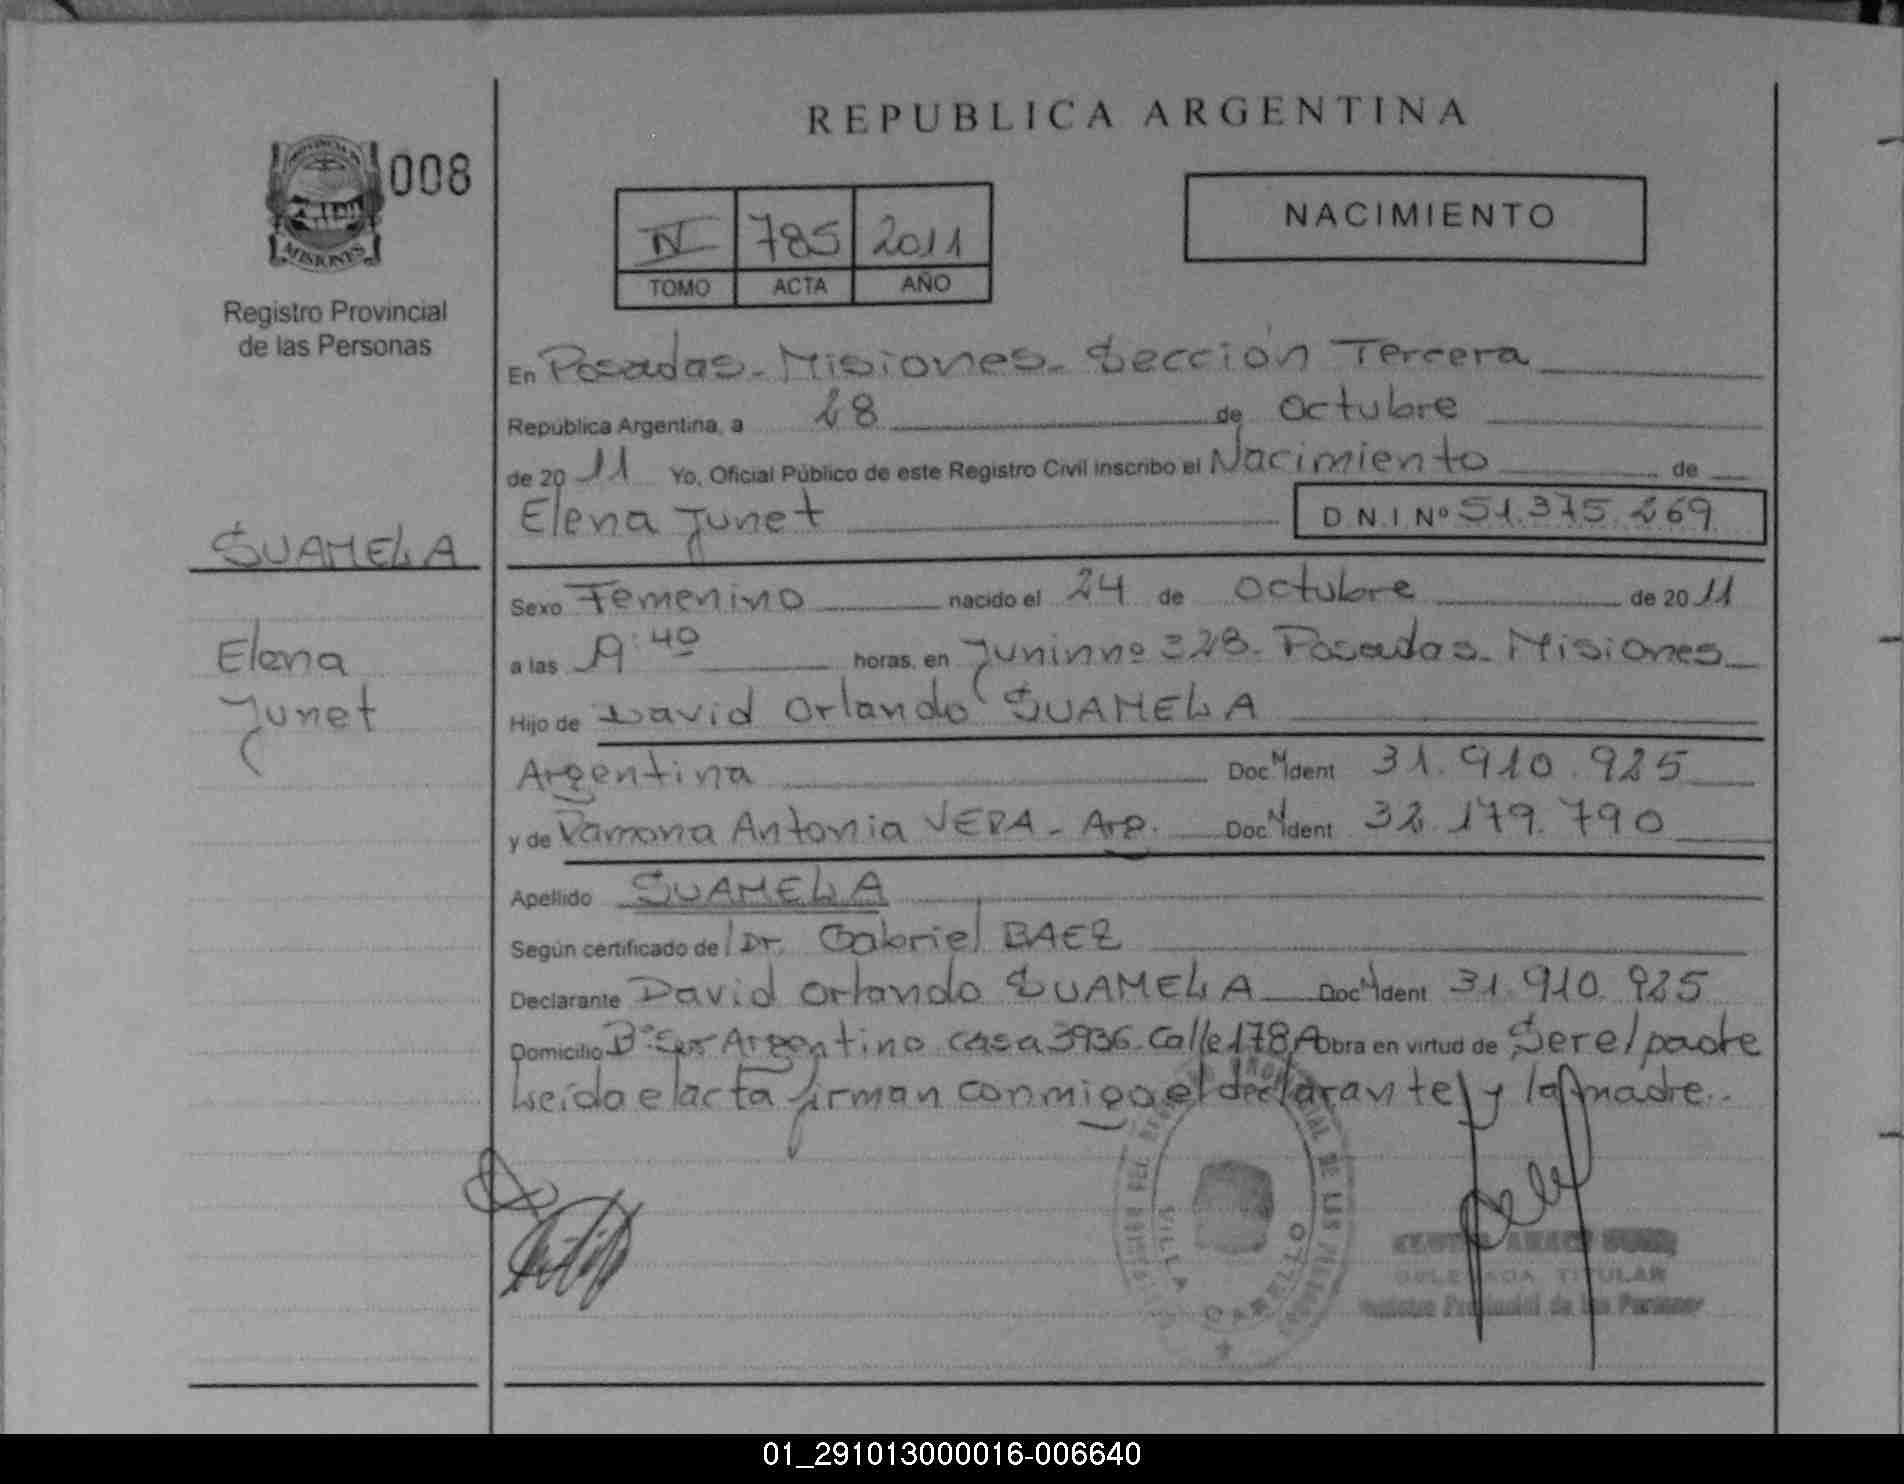 REPUBLICA ARGENTINA
PROVINCIA DE
MISIONES
008
Registro Provincial
de las Personas
IV 785 2011
TOMO ACTA AÑO
NACIMIENTO
En Posadas - Misiones - Sección Tercera
República Argentina, a 28 de Octubre
de 2011 Yo, Oficial Público de este Registro Civil inscribo el Nacimiento de
Elena Junet D N.I Nº 51.375.269
SUAMELA
Sexo Femenino nacido el 24 de Octubre de 2011
Elena
a las horas, en Junin nº 328 - Posadas - Misiones
Junet
Hijo de David Orlando SUAMELA
Argentina Doc M Ident 31.910.925
y de Ramona Antonia VERA - Arg. Doc M Ident 32.179.790
Apellido SUAMELA
Según certificado de Dr. Gabriel BAEZ
Declarante David Orlando SUAMELA Doc M Ident 31.910.925
Domicilio Bº Sur Argentino casa 3936 Calle 178 A Obra en virtud de Ser el padre
Leída el acta firman conmigo el declarante y la madre.
VILLA CABELLO
DELEGADA TITULAR
Registro Provincial de las Personas
01_291013000016-006640